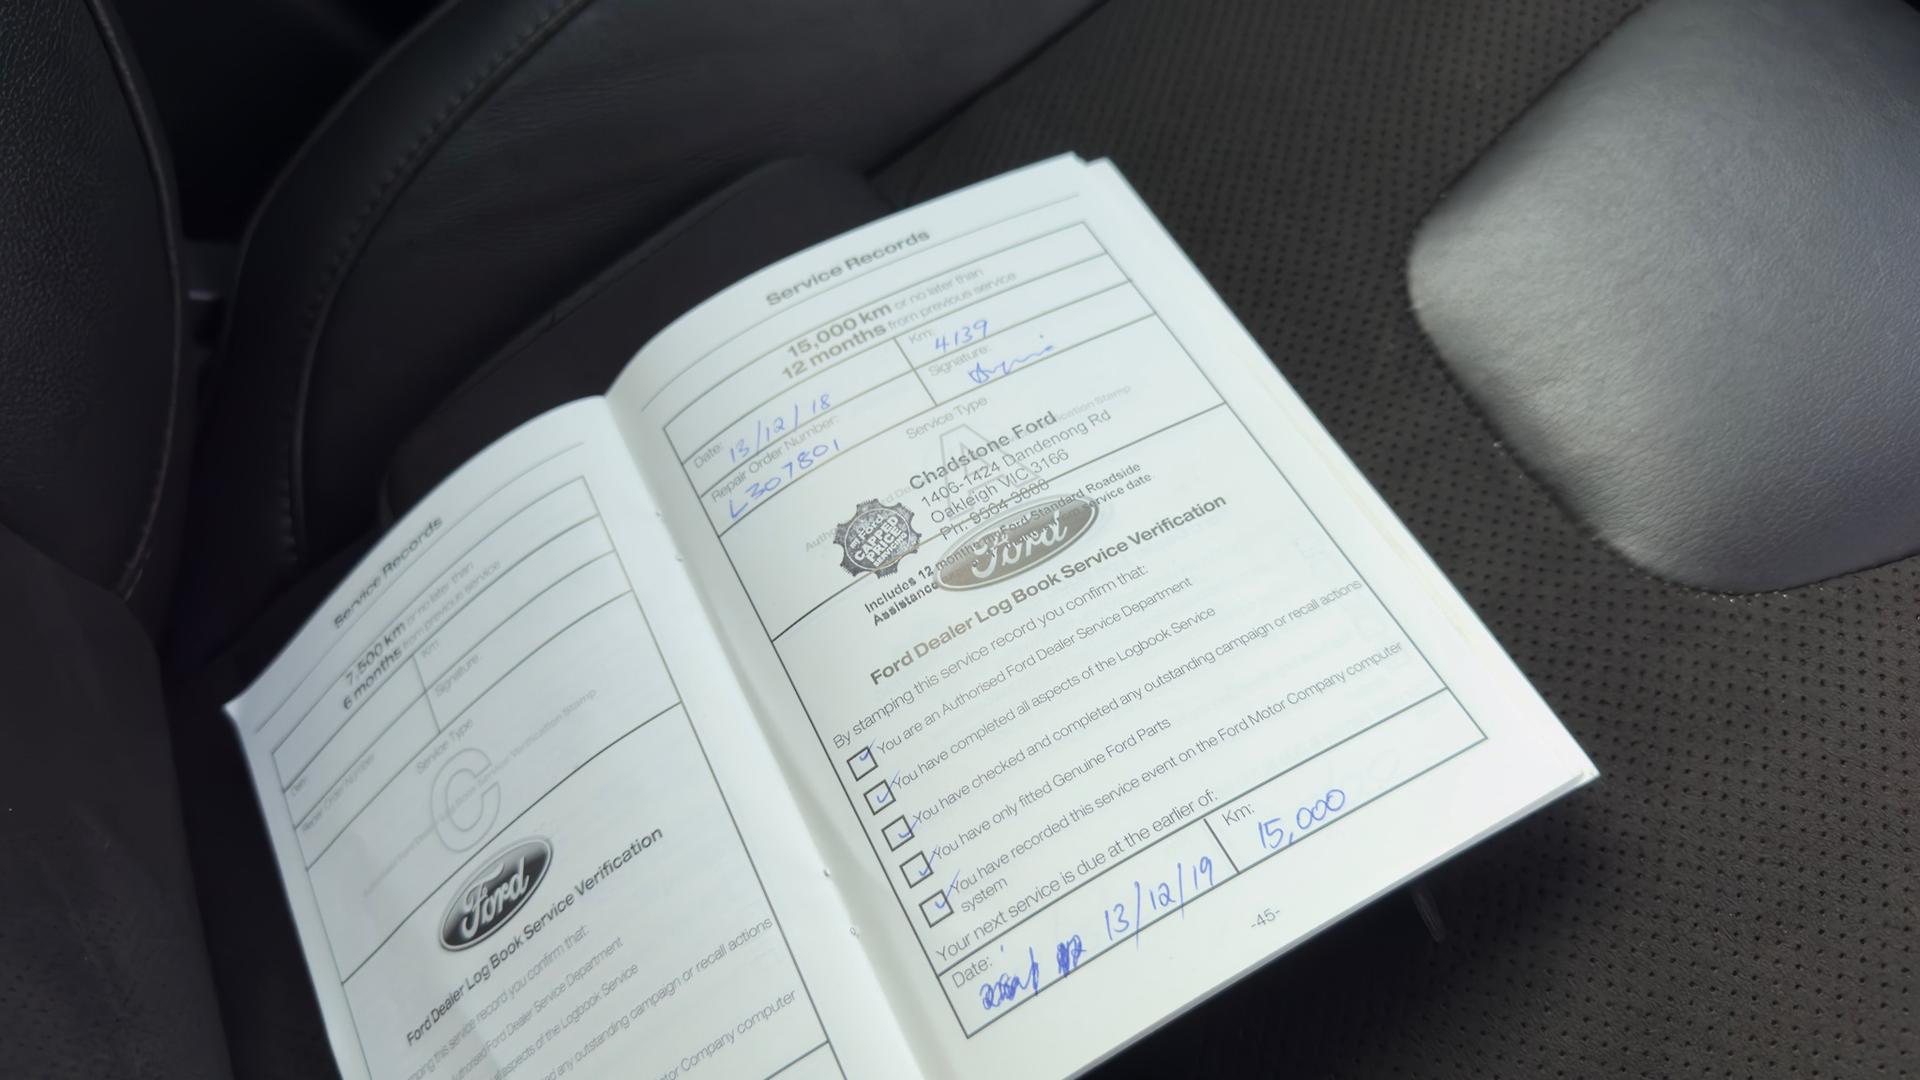 Service Records
7,500 km or no later than
6 months from previous service
Km:
Signature:
Date:
Repair Order Number:
Service Type
C
Ford
Ford Dealer Log Book Service Verification
this service record you confirm that:
Authorised Ford Dealer Service Department
aspects of the Logbook Service
any outstanding campaign or recall actions
Motor Company computer
Service Records
15,000 km or no later than
12 months from previous service
Date: 13/12/18
Km: 4139
Repair Order Number:
L307801
Signature:
Service Type
A
Chadstone Ford
1406-1424 Dandenong Rd
Oakleigh VIC 3166
Ph: 9564 8888
CAPPED
PRICE
SERVICING
Includes 12 months Ford Standard Roadside
Assistance from service date.
Ford
Ford Dealer Log Book Service Verification
By stamping this service record you confirm that:
You are an Authorised Ford Dealer Service Department
You have completed all aspects of the Logbook Service
You have checked and completed any outstanding campaign or recall actions
You have only fitted Genuine Ford Parts
You have recorded this service event on the Ford Motor Company computer
system
Your next service is due at the earlier of:
Date: 13/12/19
Km: 15,000
-45-